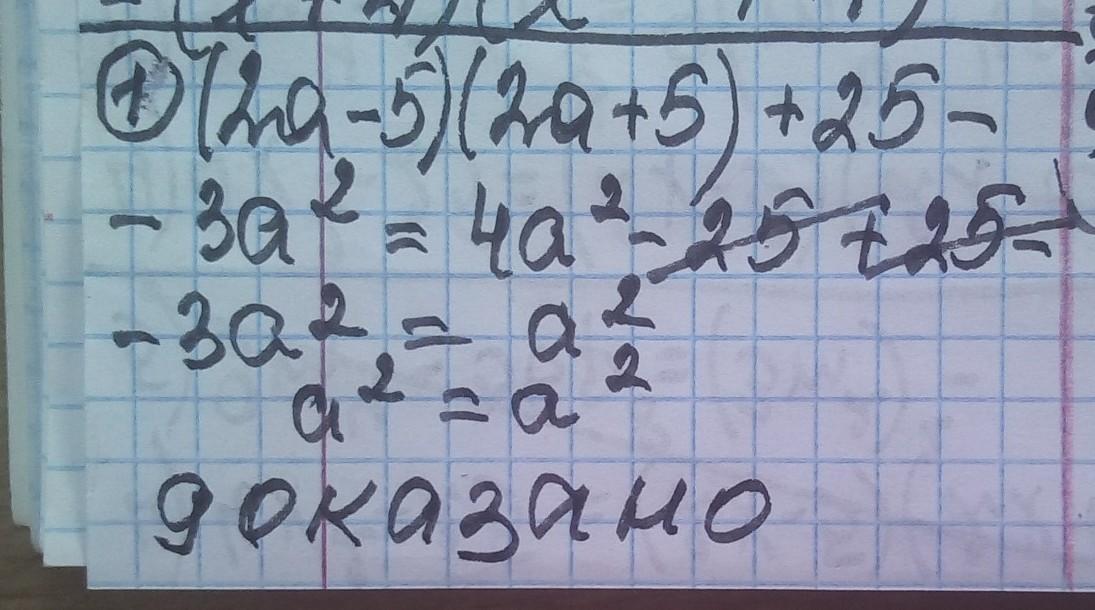 + (2a-5)(2a+5) + 25 -
- 3a² = 4a² - 25 + 25 -
- 3a² = a²
a² = a²
доказано